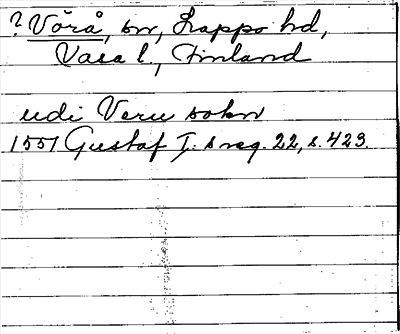 ? Vörå, sn, Lappo hd,
Vasa l, Finland
udi Veru sokn
1551 Gustaf I:s reg. 22, s. 423.